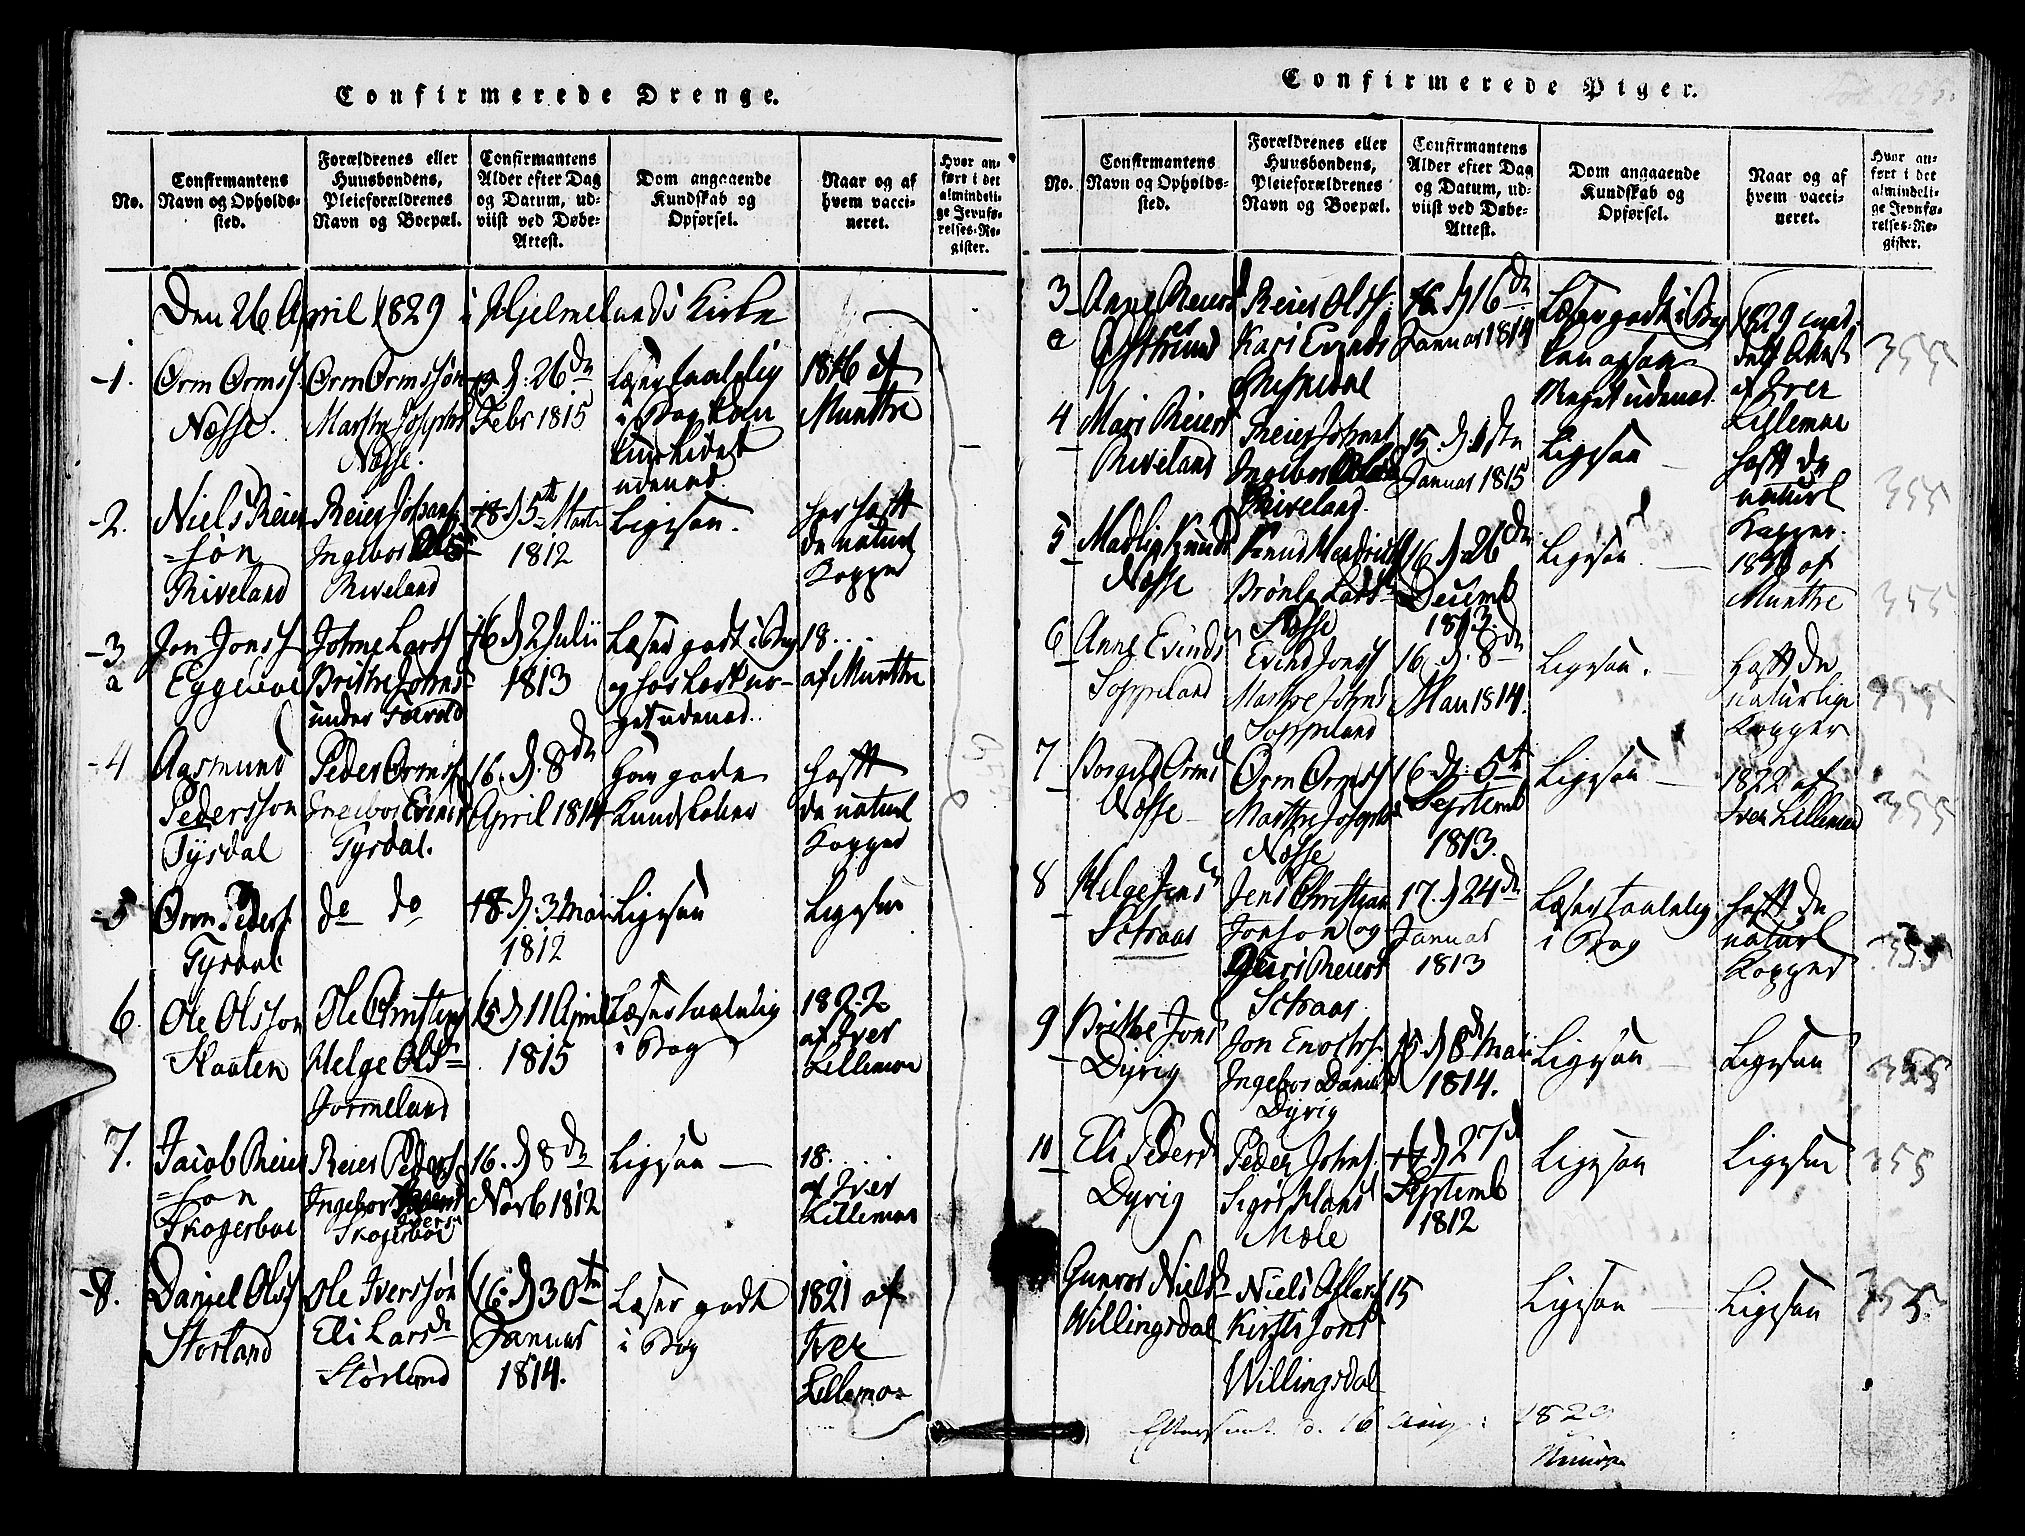 Confirmerede Drenge.
No.
Confirmantens
Navn og Opholds-
sted.
Forældrenes eller
Huusbondens,
Pleieforældrenes
Navn og Boepæl.
Confirmantens
Alder efter Dag
og Datum, ud-
viist ved Døbe-
Attest.
Dom angaaende
Kundskab og
Opførsel.
Naar og af
hvem vacci-
neret.
Hvor an-
ført i det
almindeli-
ge Jevnfø-
relses-Re-
gister.
Den 26 April 1829 i Hjelmelands Kirke
1.
Orm Ormss.
Næsse.
Orm Ormssøn
Marthe Josephs
Næsse.
d: 26de
Febr 1815
Læser taalelig
i Bog kan
kuns lidet
udenad
1816 af
Munthe
2.
Niels Reier
=søn
Riveland
Reier Johans
Ingebor Olsd
Riveland
18 d 5te Marts
1812
Ligesaa.
har haft
de naturl
Kopper
3
a
Jon Jonss
Eggebøe
Johne Larss
Brithe Johns
under
16 d 2 Julii
1813
Læser godt i Bog
og har lært no-
get udenad.
18...
af Munthe
4
Aasmund
Pedersson
Tysdal
Peder Ormss
Ingebor Evinds
Tysdal.
16. d. 8de
April 1814
Har gode
Kundskaber
haft
de naturl
Kopper
5
Orm Peders.
Tysdal
do do
18 d. 3 Mai
1812
Ligesaa
Ligesaa
6
Ole Olsson
Haaten
Ole Christens
Helge Olsd
Jormeland
15 d 11 April
1815
Læser taalelig
i Bog
1822
af Iver
Lillemoe
7.
Jacob Reier
=son
Skogerboe
Reier Peders
Ingebor
Ivers
Skogerboe
16. d 8de
Novb 1812
Ligesaa
18...
af Iver
Lillemoe
8.
Daniel Olss
Storland
Ole Iverssøn
Eli Larsd
Størland
16. d 30te
Januar
1814.
Læser godt
i Bog
1821 af
Iver
Lillemoe
Confirmerede Piger.
No.
Confirmantens
Navn og Opholds-
sted.
Forældrenes eller
Huusbondens,
Pleieforældrenes
Navn og Boepæl.
Confirmantens
Alder efter Dag
og Datum, ud-
viist ved Døbe-
Attest.
Dom angaaende
Kundskab og
Opførsel.
Naar og af
hvem vacci-
neret.
Hvor an-
ført i det
almindeli-
ge Jevnfø-
relses-Re-
gister.
3
a
Anne Reiersd
Østhuus
Reier Olss.
Kari Evinds
d 16de
Januar 1814
Læser godt i Bog
kan ogsaa
Meget udenad.
1829 med
delt Attest
af Iver
Lillemoe
355
4
Mari Reiers
Riveland
Reier Johans
Ingebor Olsd
Riveland.
15. d.
Januar 1815
Ligesaa
haft de
naturl
Kopper.
355
5
Madli Knuds
Næsse
Knud
Brønla Larsd
Næsse
16 d 26de
Decemb
1813.
Ligesaa.
af
Munthe
355
6
Anne Evinds
Soppeland
Evind Jonss
Marthe Johns
Soppeland
16. d. 8de
Mai 1814.
Ligesaa.
haft de
naturlige
Kopper
355
7
Borgild Ormsd
Næsse
Orm Ormss
Marthe Josephs
Næsse
16 d: 5te
Septemb
1813.
Ligesaa
1822 af
Iver Lillemoe
355
8
Helge Jensd
Sctraas
Jens Christian
Jonson og
Guri Reiers
Sctraas
17. d 24de
Januar
1813
Læser taalelig
i Bog
haft de
naturl
Kopper
355
9
Brithe Jons
Dyvig
Jon Enochs.
Ingebor Daniels
Dyvig
15 d 8de Mai
1814.
Ligesaa
Ligesaa
355
10
Eli Pedersd
Dyvig
Peder Johns.
Sigri Hans
Mæle
d 27d
Septemb
1812
Ligesaa
Ligesaa
355
Gunvor Nielsd
Willingsdal
Niels Aslacs
Kirsti Jonsd
Willingsdal
15
Ligesaa
Ligesaa
355.
Efterseet d. 16 Aug: 1829